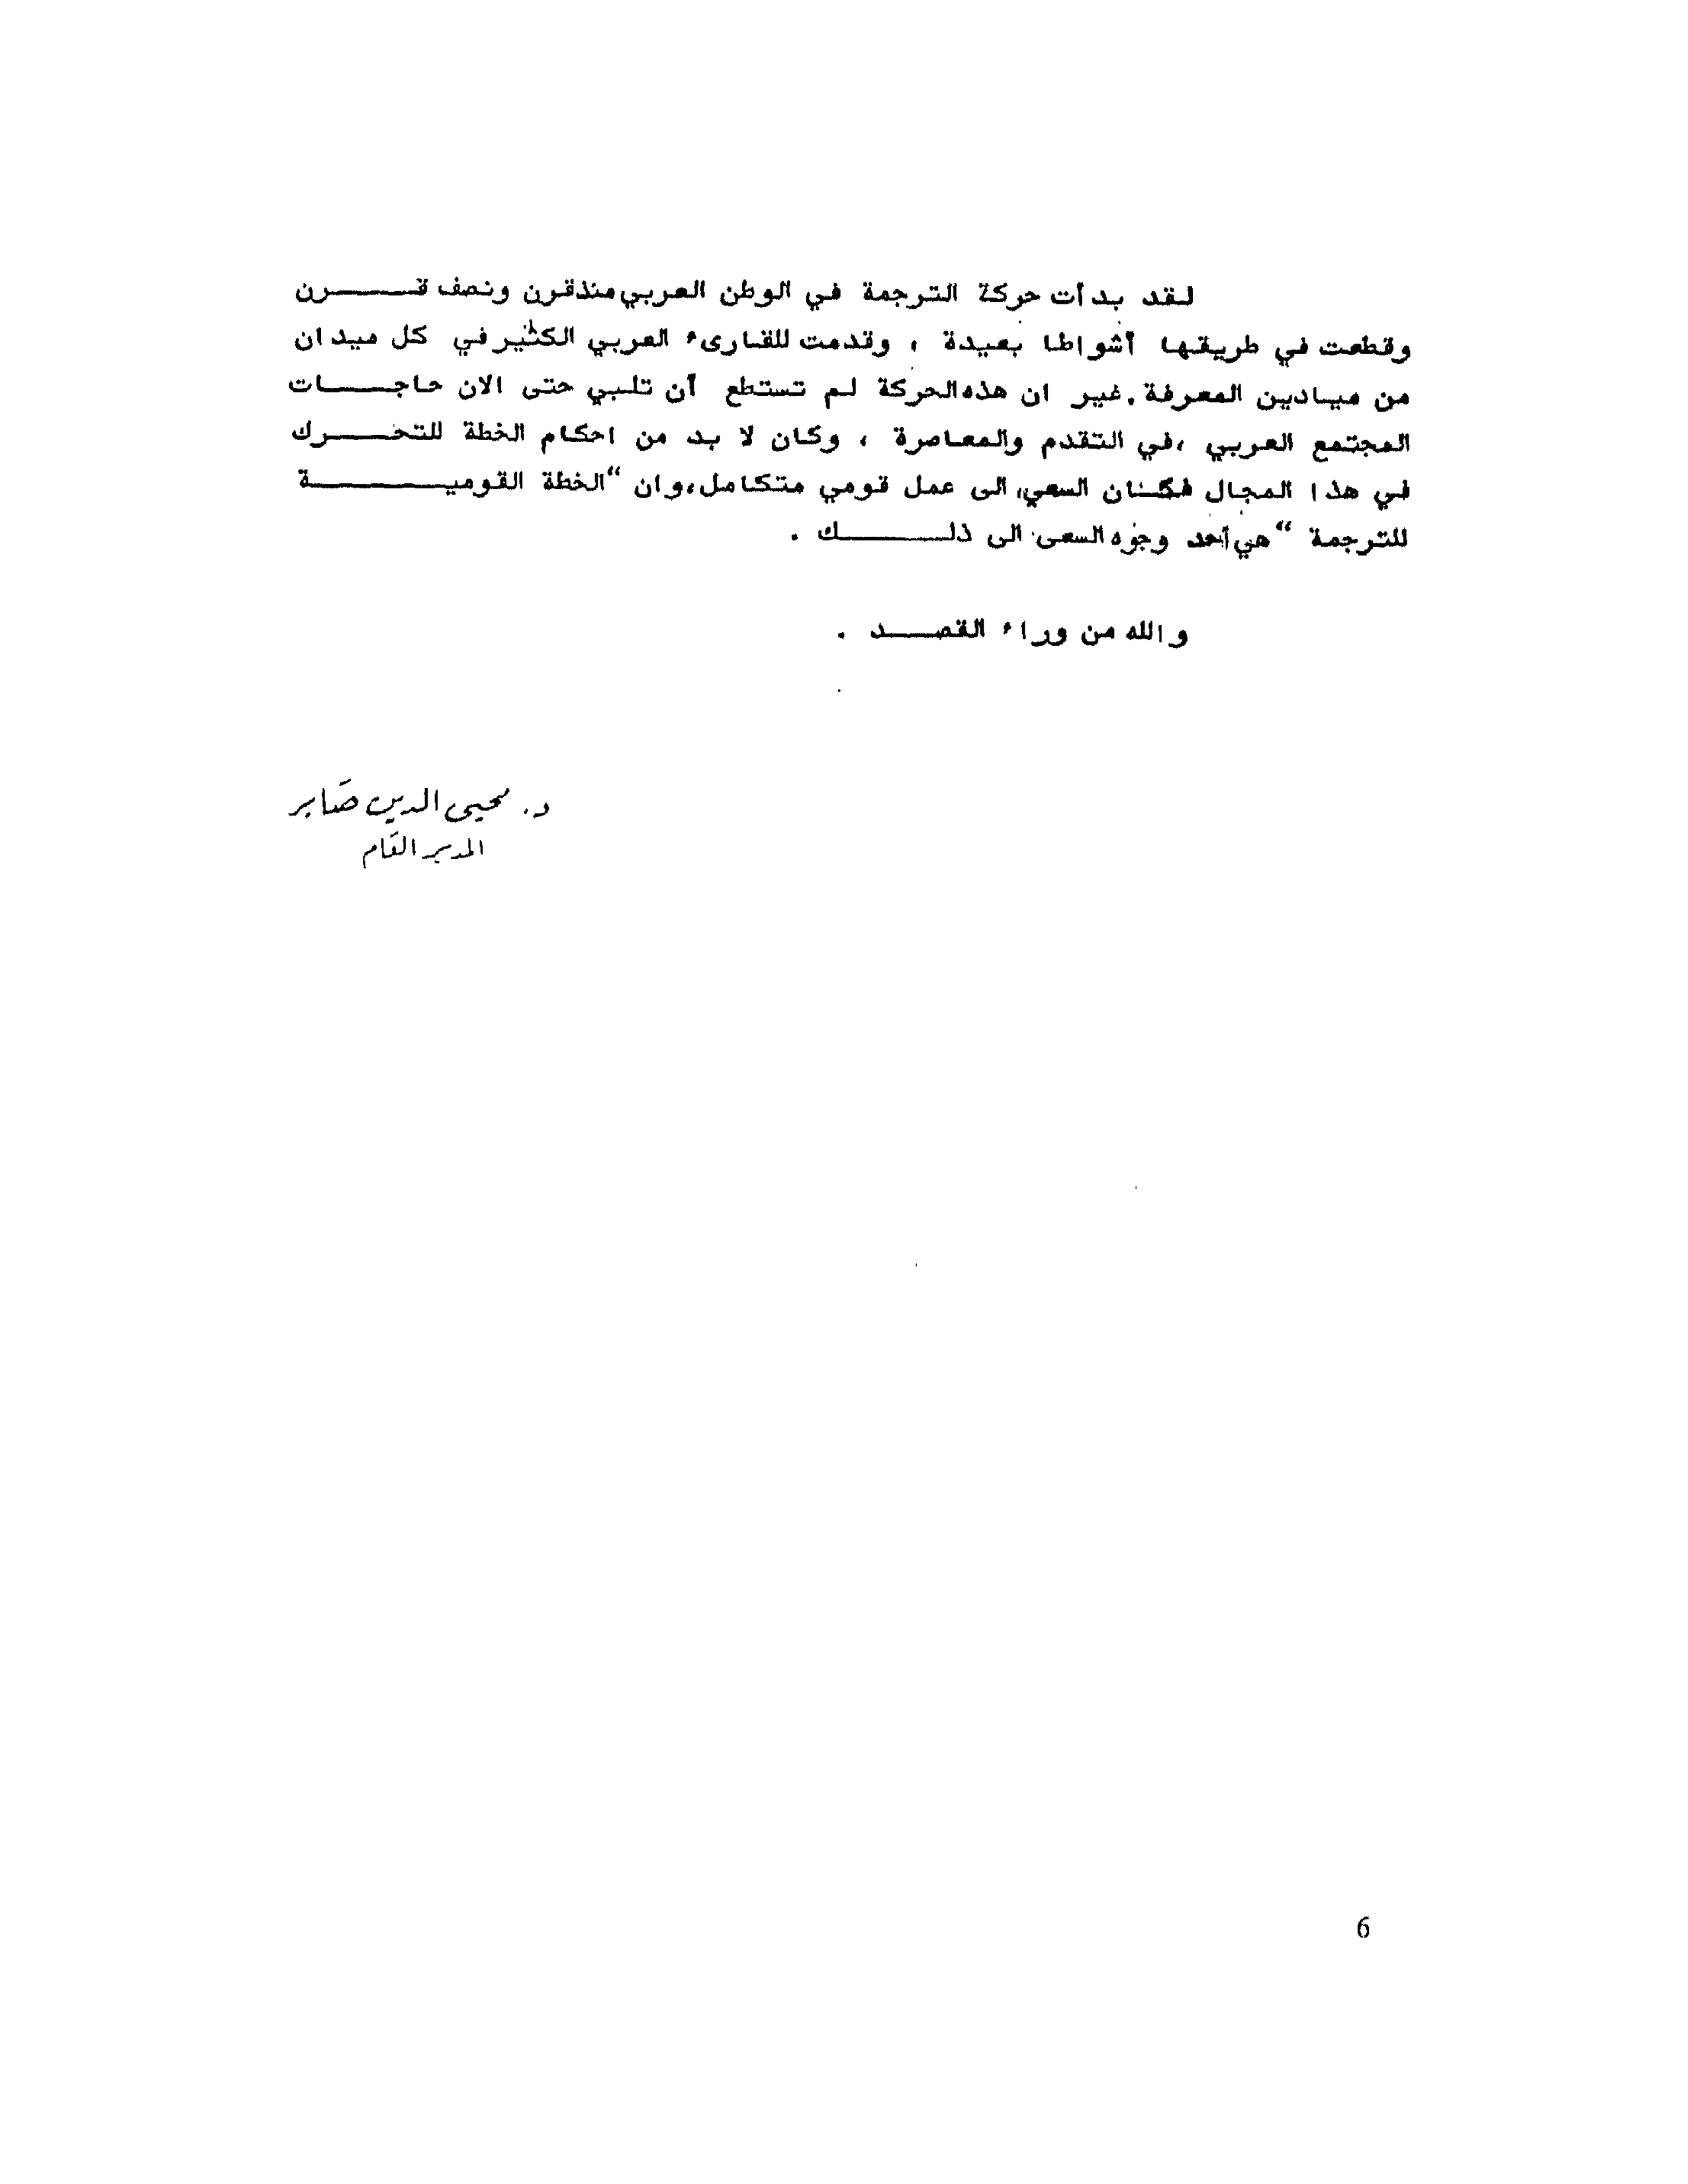 لقد بدأت حركة الترجمة في الوطن العربي منذقرن ونصف قـــــرن
وقطعت في طريقها أشواطا بعيدة ، وقدمت للقارىء العربي الكثير في كل ميدان
من ميادين المعرفة . غير ان هذه الحركة لم تستطع أن تلبي حتى الان حاجـــات
المجتمع العربي ،في التقدم والمعاصرة ، وكان لا بد من احكام الخطة للتحـــرك
في هذا المجال فكان السعي، الى عمل قومي متكامل،وان "الخطة القوميـــــة
للترجمة " هي أحد وجوه السعى الى ذلـــــك .
والله من وراء القصـــد .
د. محيى الدين صَابر
المدير العَام
6